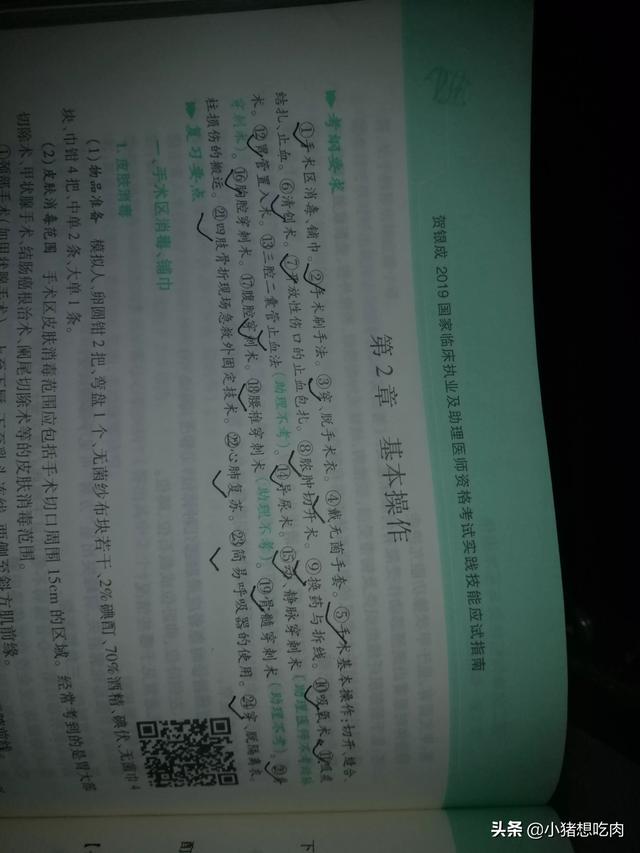 贺银成 2019 国家临床执业及助理医师资格考试实践技能应试指南
第2章 基本操作
考纲要求
①手术区消毒、铺巾。②手术刷手法。③穿、脱手术衣。④戴无菌手套。⑤手术基本操作:切开、缝合、
结扎、止血。⑥清创术。⑦开放性伤口的止血包扎。⑧脓肿切开术。⑨换药与拆线。⑩吸氧术。⑪吸痰
术。⑫胃管置入术。⑬三腔二囊管止血法(助理不考)。⑭导尿术。⑮动、静脉穿刺术(助理医师不考动脉
穿刺术)。⑯胸腔穿刺术。⑰腹腔穿刺术。⑱腰椎穿刺术(助理不考)。⑲骨髓穿刺术(助理不考)。⑳脊
柱损伤的搬运。㉑四肢骨折现场急救外固定技术。㉒心肺复苏。㉓简易呼吸器的使用。㉔穿、脱隔离衣。
复习要点
一、手术区消毒、铺巾
1. 皮肤消毒
(1)物品准备 模拟人、卵圆钳2把、弯盘1个、无菌纱布块若干、2%碘酊、70%酒精、碘伏、无菌巾4
块、巾钳4把、中单2条、大单1条。
(2)皮肤消毒范围 手术区皮肤消毒范围应包括手术切口周围15cm的区域。经常考到的是胃大部
切除术、甲状腺手术、结肠癌根治术、阑尾切除术等的皮肤消毒范围。
①颈部手术(如甲状腺手术) 上至下唇,下至乳头连线,两侧至斜方肌前缘。
头条 @小猪想吃肉